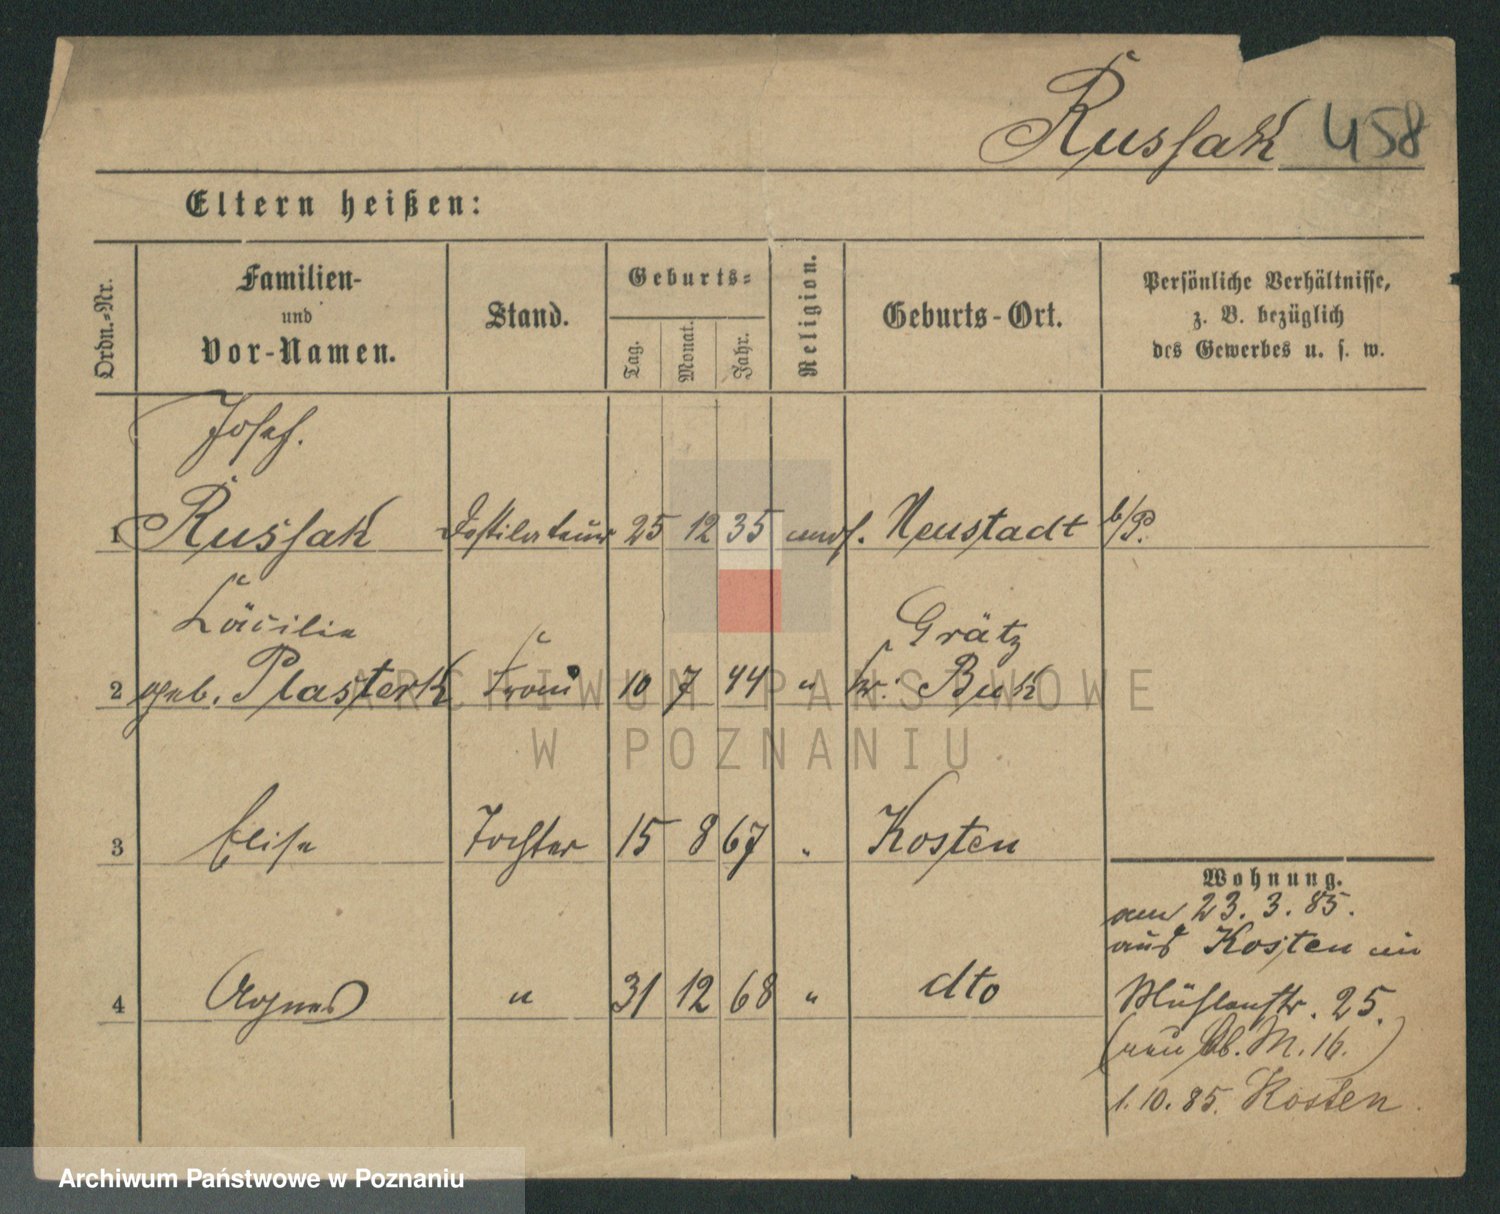 Russak 458
Eltern heißen:
Ordn.=Nr.
Familien-
und
Vor-Namen.
Stand.
Geburts=
Tag.
Monat.
Jahr.
Religion.
Geburts-Ort.
Persönliche Verhältnisse,
z. B. bezüglich
des Gewerbes u. s. w.
Josef.
1 Russak Destilateur 25 12 35 mos. Neustadt b/P.
Cäcilie Grätz
2 geb. Plasterk Frau 10 7 44 " Kr. Buk
3 Elise Tochter 15 8 67 " Kosten
4 Agnes " 31 12 68 " dto
Wohnung.
am 23. 3. 85.
aus Kosten in
Mühlenstr. 25.
(neu M. 16.)
1. 10. 85. Kosten.
ARCHIWUM PAŃSTWOWE
W POZNANIU
Archiwum Państwowe w Poznaniu